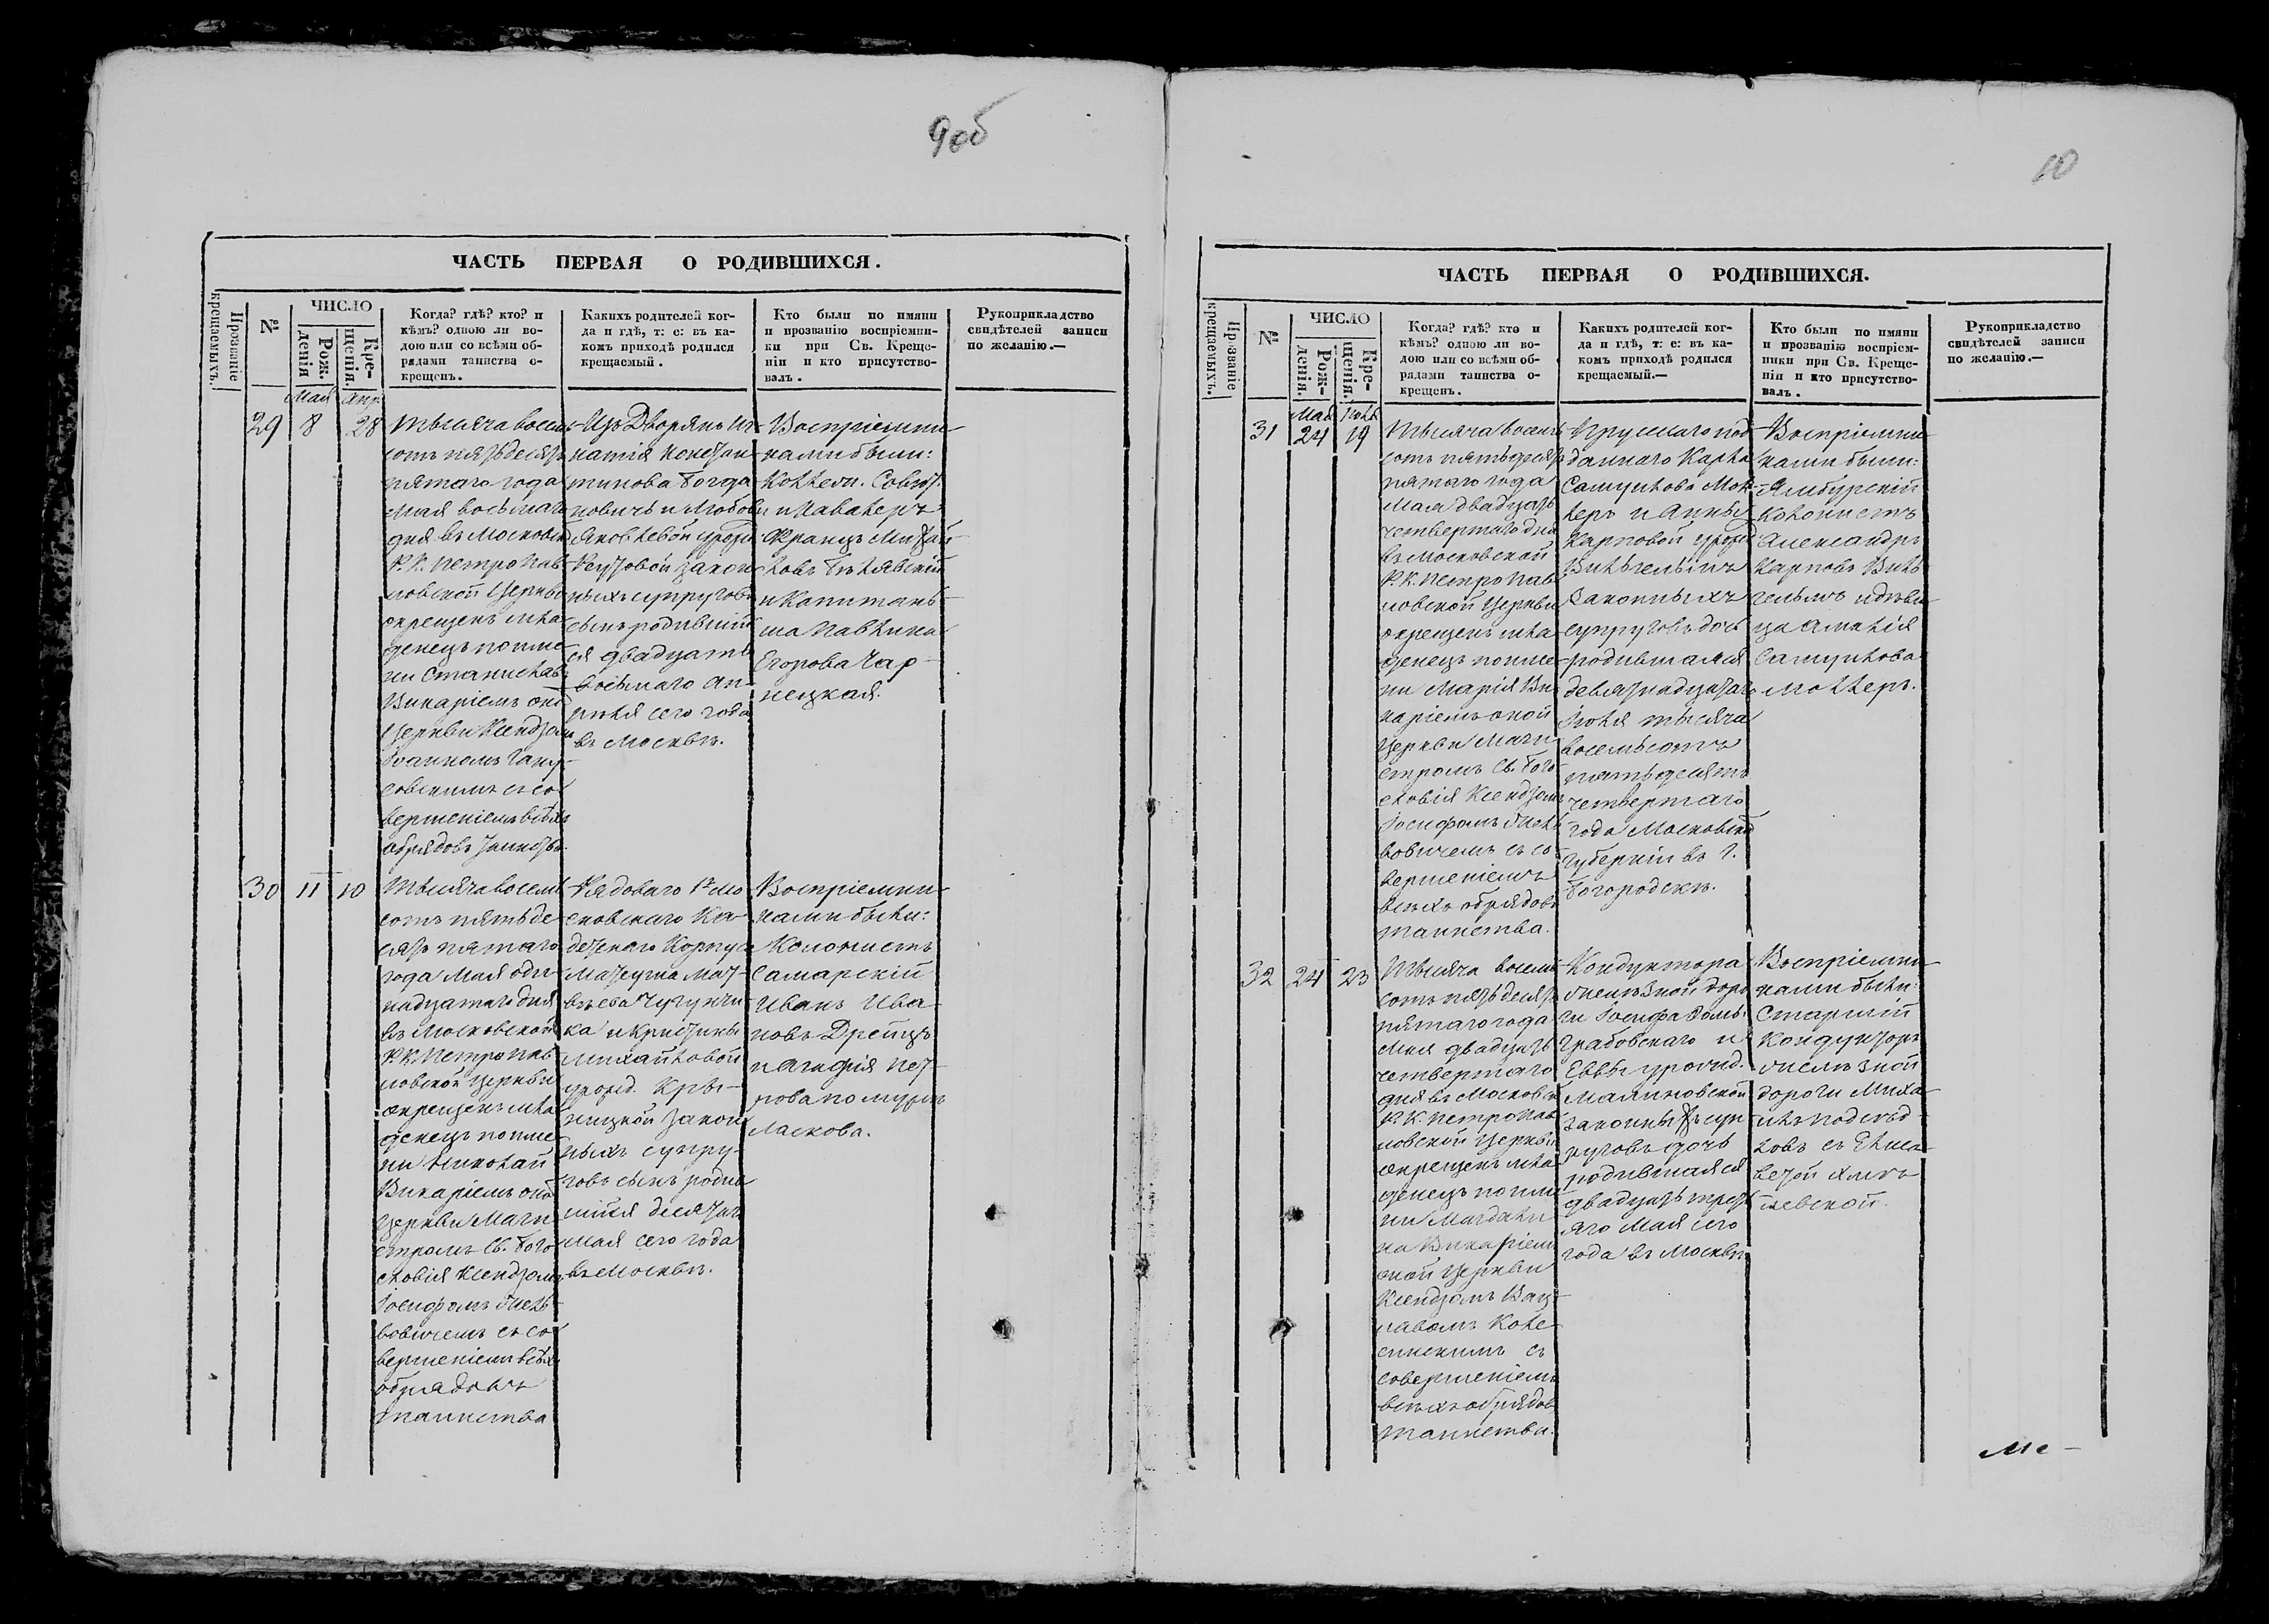 9об
ЧАСТЬ ПЕРВАЯ О РОДИВШИХСЯ.
Прозваніе крещаемыхъ.
№
ЧИСЛО
Рож.
денія
Кре-
щенія.
Когда? гдѣ? кто? и
кѣмъ? одною ли во-
дою или со всѣми об-
рядами таинства о-
крещенъ.
Какихъ родителей ког-
да и гдѣ, т: е: въ ка-
комъ приходѣ родился
крещаемый.
Кто были по имяни
и прозванію воспріемни-
ки при Св. Креще-
ніи и кто присутство-
валъ.
Рукоприкладство
свидѣтелей записи
по желанію.—
Мая Апр.
29 8 28
Тысяча восемь
сотъ пятьдесятъ
пятаго года
Мая восьмаго
дня въ Московск
Р. К. Петропав
ловской Церкви
окрещенъ мла
денецъ по име
ни Станиславъ
Викаріемъ оной
Церкви Ксендзомъ
Іоанномъ
совскимъ съ со
вершеніемъ всѣхъ
обрядовъ таинства.
Изъ Дворянъ Иг
натія Констан
тинова Богда
новичъ и Любови
Яковлевой урожд
законн
ныхъ супруговъ
сынъ родившій
ся двадцать
восьмаго ап-
рѣля сего года
въ Москвѣ.
Воспріемни
ками были:
Коллежс. Совѣт.
и Кавалеръ
Францъ Михай
ловъ Бѣлявскій
и Капитанъ
ша Павлина
Егорова Чар-
нецкая.
30 11 10
Тысяча восемь
сотъ пятьде
сятъ пятаго
года Мая оди-
надцатаго дня
въ Московской
Р. К. Петропав
ловской Церкви
окрещенъ мла
денецъ по име
ни Николай
Викаріемъ оной
Церкви Маги
стромъ Св. Бого
словія Ксендзомъ
Іосифомъ
вовичемъ съ со
вершеніемъ всѣхъ
обрядовъ
таинства
Рядоваго 1го Мо
сковскаго Ка-
детскаго Корпуса
Матеуша Мат-
вѣева Чугунчи
ка и Кристины
Михайловой
урожд.
ницкой закон
ныхъ супру-
говъ сынъ родив
шійся десятаго
Мая сего года
въ Москвѣ.
Воспріемни
ками были:
Колонистъ
Самарскій
Иванъ Ива-
новъ Дрейцъ
и Агафія Пет-
рова по мужѣ
Ласкова.
10
ЧАСТЬ ПЕРВАЯ О РОДИВШИХСЯ.
Прозваніе крещаемыхъ.
№
ЧИСЛО
Рож-
денія.
Кре-
щенія.
Когда? гдѣ? кто и
кѣмъ? одною ли во-
дою или со всѣми об-
рядами таинства о-
крещенъ.
Какихъ родителей ког-
да и гдѣ, т: е: въ ка-
комъ приходѣ родился
крещаемый.—
Кто были по имяни
и прозванію воспріем-
ники при Св. Креще-
ніи и кто присутство-
валъ.
Рукоприкладство
свидѣтелей записи
по желанію.—
Мая Іюля
31 24 19
Тысяча восемь
сотъ пятьдесятъ
пятаго года
Мая двадцать
четвертаго дня
въ Московской
Р. К. Петропав
ловской Церкви
окрещенъ мла
денецъ по име
ни Марія Ви
каріемъ оной
Церкви Маги
стромъ Св. Бого
словія Ксендзомъ
Іосифомъ
вовичемъ съ со
вершеніемъ
всѣхъ обрядовъ
таинства.
Прусскаго под
даннаго Карла
Самуилова Мол
леръ и Анны
Карповой урожд
Вильгельмъ
Законныхъ
супруговъ дочь
родившаяся
девятнадцатаго
Іюля тысяча
восемьсотъ
пятьдесятъ
четвертаго
года Московской
Губерніи въ Г.
Богородскѣ.
Воспріемни
ками были:
Ямбургскій
Колонистъ
Александръ
Карповъ Виль
гельмъ и дѣви
ца Амалія
Самуилова
Моллеръ.
32 24 23
Тысяча восемь
сотъ пятьдесятъ
пятаго года
Мая двадцать
четвертаго
дня въ Московск
Р. К. Петропав
ловской Церкви
окрещенъ мла
денецъ по име
ни Магдали
на Викаріемъ
оной Церкви
Ксендзомъ Вац-
лавомъ Коле
синскимъ съ
совершеніемъ
всѣхъ обрядовъ
таинства.
Кондуктора
желѣзной доро
ги Іосифа Домъ
грабовскаго и
Еввы урожд.
Малиновской
законныхъ суп
руговъ дочь
родившаяся
двадцать треть
яго Мая сего
года въ Москвѣ
Воспріемни
ками были:
Старшій
Кондукторъ
желѣзной
дороги Миха
илъ
ловъ съ Елиса
ветой
левской.
Ме-